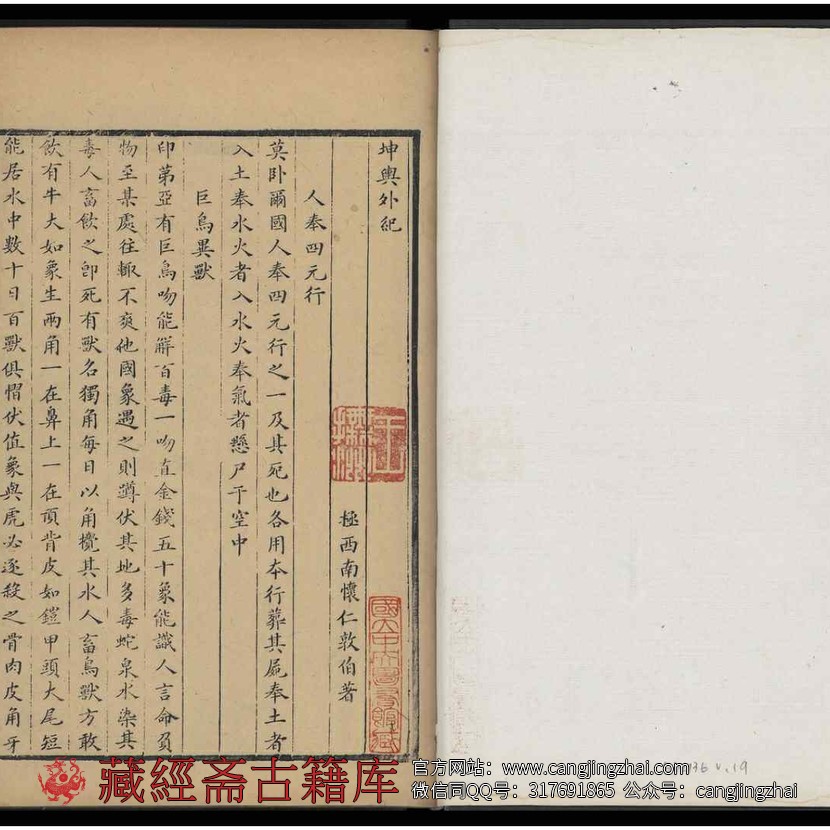 坤輿外紀
極西南懷仁敦伯著
人奉四元行
莫卧爾國人奉四元行之一及其死也各用本行葬其屍奉土者
入土奉水火者入水火奉氣者懸尸于空中
巨鳥異獸
印第亞有巨鳥吻能解百毒一吻直金錢五十象能識人言命負
物至某處往輙不爽他國象遇之則蹲伏其地多毒蛇泉水染其
毒人畜飲之卽死有獸名獨角每日以角攪其水人畜鳥獸方敢
飲有牛大如象生兩角一在鼻上一在頂背皮如鎧甲頭大尾短
能居水中數十日百獸俱慴伏值象與虎必逐殺之骨肉皮角牙
藏經斋古籍库
官方网站：www.cangjingzhai.com
微信同QQ号：317691865 公众号：cangjingzhai